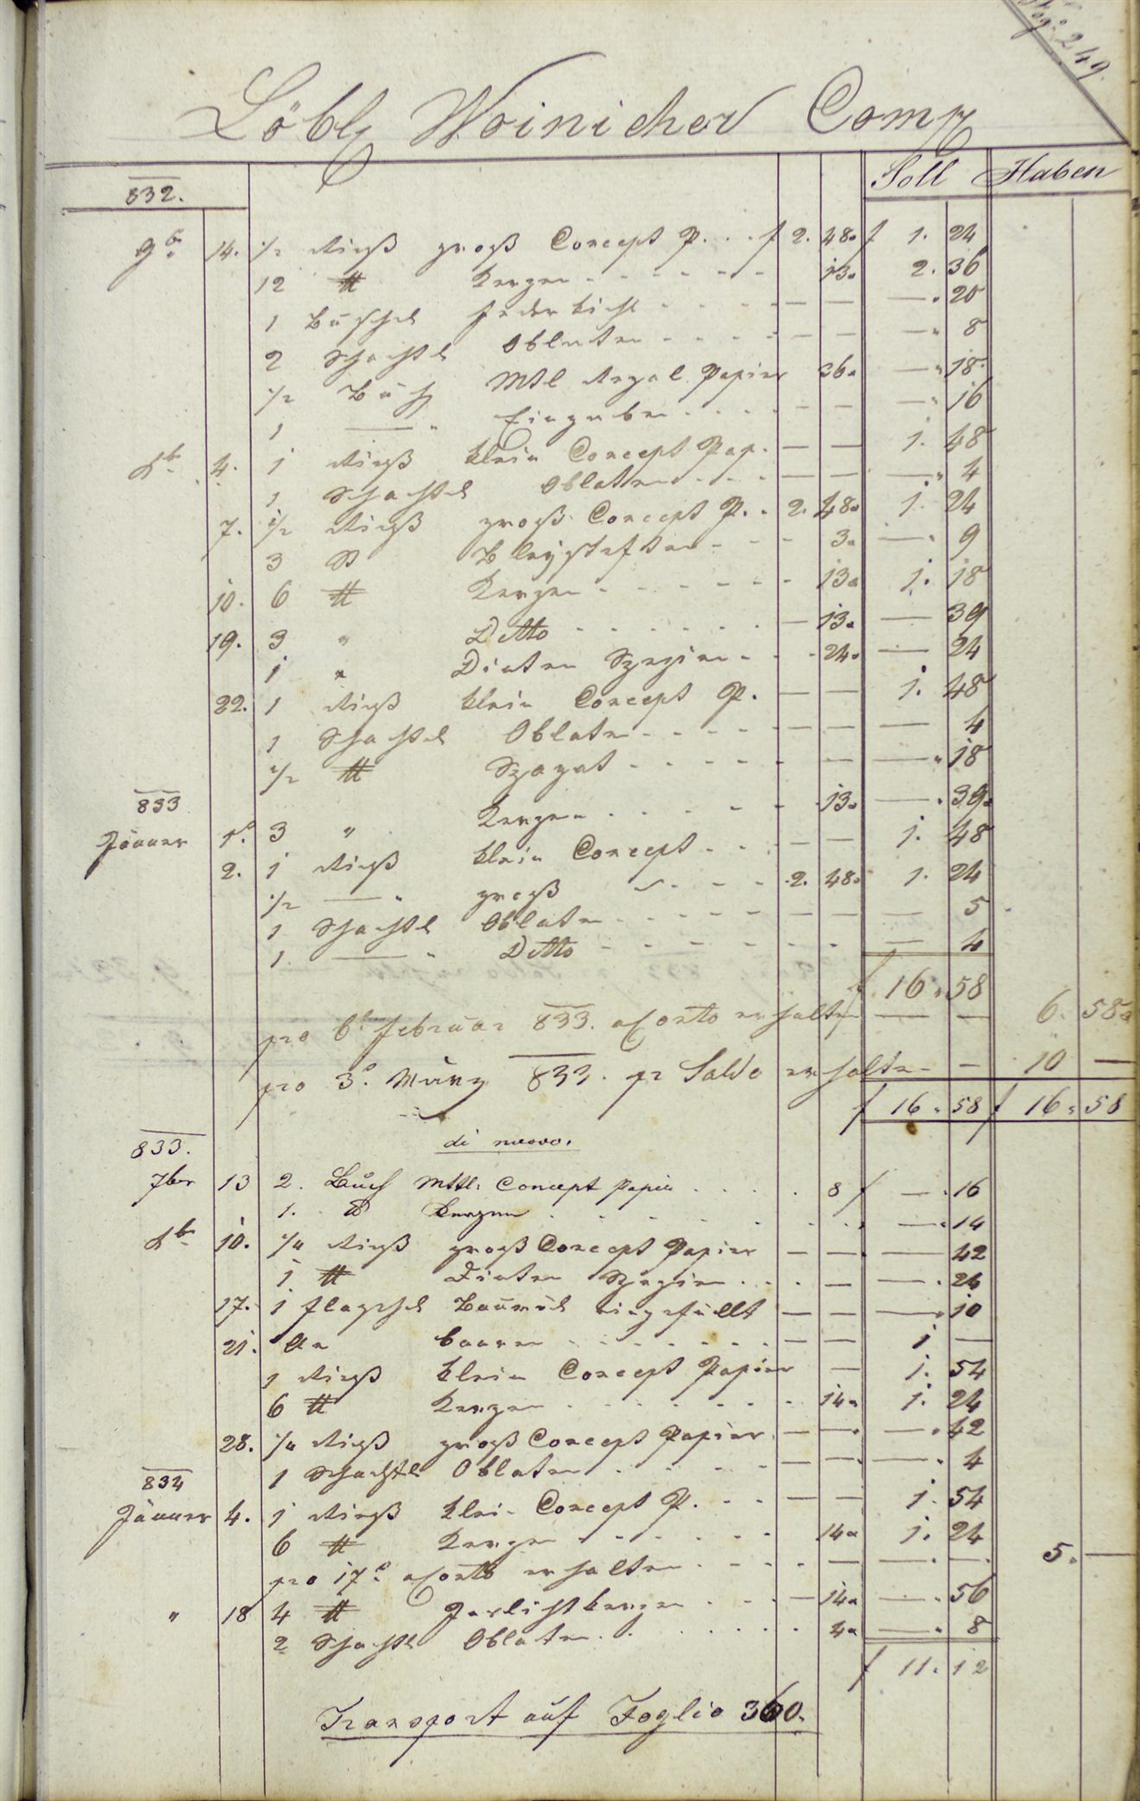 Fog: 249.
Löbl Woinicher Comp
Soll Haben
832.
9b 14. 1/2 Rieß groß Concept P. . . f 2. 48 f 1. 24
12 ℔ Kerzen - - - - 13 2. 36
1 Büschel Federkiehl - - - - — — — 20
2 Schachtl Oblaten - - - - — — — 8
1/2 Buch Mtl Regal Papier 36 — 18
1 — " Eingaben . . . . — — — 16
Xb 4. 1 Rieß klein Concept Pap. — — 1. 48
1 Schachtel Oblaten - - - — — — 4
7. 1/2 Rieß groß Concept P. . 2. 48 1. 24
3 St Bleystiften - - - 3 — 9
10. 6 ℔ Kerzen - - - - - 13 1. 18
19. 3 " Detto - - - - - — 13 — 39
1 " Dinten Spezien - - - 24 — 24
22. 1 Rieß klein Concept P. — — 1. 48
1 Schachtel Oblaten - - - - — — — 4
1/2 ℔ Spagat - - - - - — — 18
833
Jänner 1. 3 " Kerzen - - - - - 13 — 39
2. 1 Rieß klein Concept - - - — — 1. 48
1/2 — " groß - - - 2. 48 1. 24
1 Schachtl Oblaten - - - - — — — 5
1 — " Detto - - - - - - — 4
f 16. 58
pro 6t Februar 833. a Conto erhalten — — 6. 58
pro 3. März 833. pr Saldo erhalten - - 10 —
f 16. 58 f 16. 58
di nuovo.
833.
7ber 13 2. Buch Mttl: Concept Papier . . . . 8 f — 16
1. ℔ Kerzen . . . . . . — 14
Xb 10. 1/4 Rieß groß Concept Papier — — — 42
1 ℔ Dinten Spezien . . . . — — 24
17. 1 Flaschel Baumöl eingefüllt — — — 10
21. An baaren . . . . . . — — 1 —
1 Rieß klein Concept Papier — 1. 54
6 ℔ Kerzen . . . . . . 14 1. 24
28. 1/4 Rieß groß Concept Papier — — — 42
1 Schachtl Oblaten . . . . - — — — 4
834
Jänner 4. 1 Rieß klein Concept P. . - - — — 1. 54
6 ℔ Kerzen - - - - - - 14 1. 24
pro 17. a Conto erhalten . - - - — — — 5. —
" 18 4 ℔ Kerzen - - - — 14 — 56
2 Schachtl Oblaten . . . . . . 4 — 8
f 11. 12
Transport auf Foglio 360.